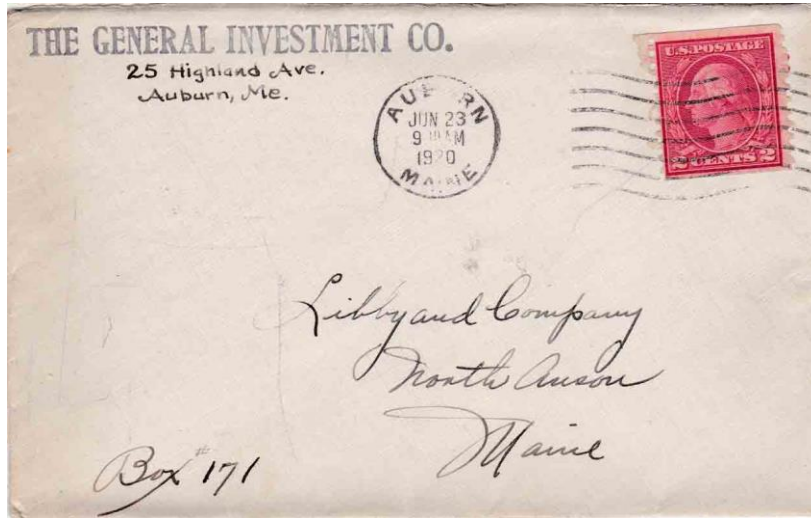 THE GENERAL INVESTMENT CO.
25 Highland Ave.
Auburn, Me.
AUBURN
JUN 23
9 AM
1920
MAINE
U.S. POSTAGE
2 CENTS 2
Libby and Company
North Anson
Maine
Box # 171